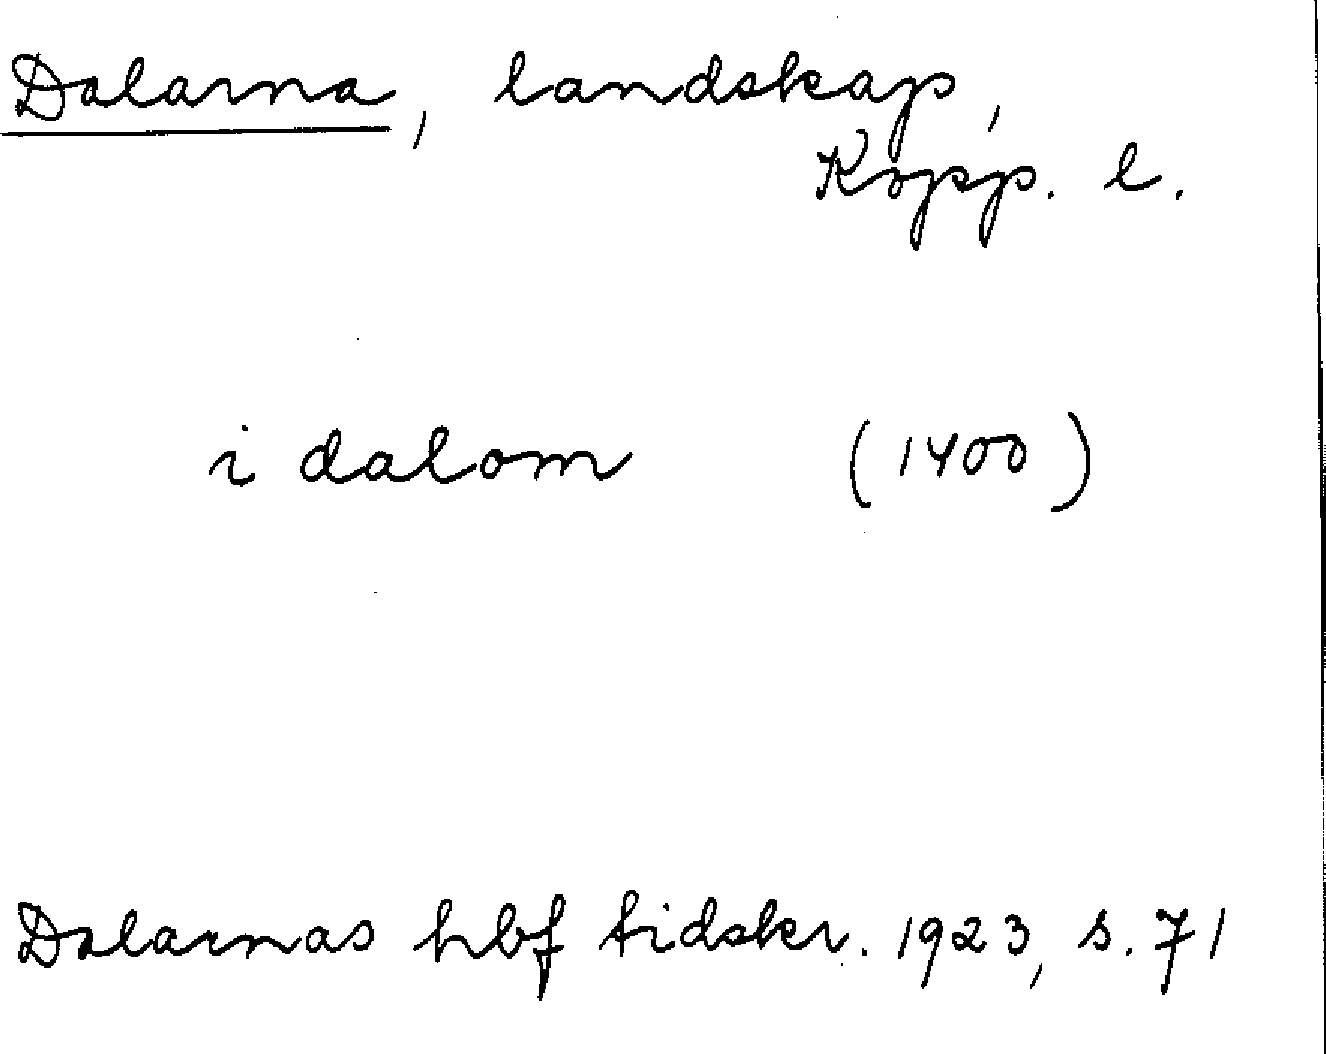 Dalarna, landskap,
Kopp. l.
i dalom (1400)
Dalarnas hbf tidskr. 1923, s. 71